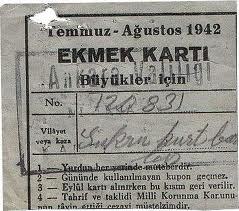 Temmuz - Ağustos 1942
EKMEK KARTI
Büyükler için
No. 120831
Vilâyet
veya kaza
1 — Yurdun her yerinde muteberdir.
2 — Gününde kullanılmayan kupon geçmez.
3 — Eylül kartı alınırken bu kısım geri verilir.
4 — Tahrif ve taklidi Milli Korunma Kanunu-
nun tâyin ettiği cezayı müstelzimdir.